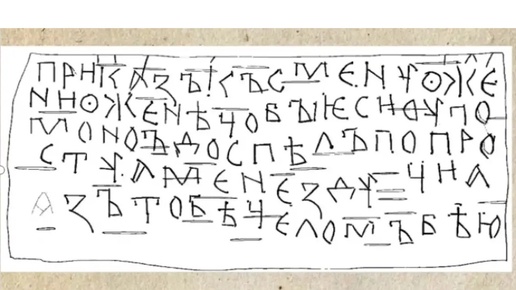 ПРНКАЗЪКЪСМЕНУОЖЕ
ННОЖЕНѢЧОБЪІЕСНОУПО
МОНОЪДОСПѢЛЪПОПРО
СТУАМЕНЕЗДУЧНЛ
АЗЪТОБѢЧЕЛОМЪБѢЮ